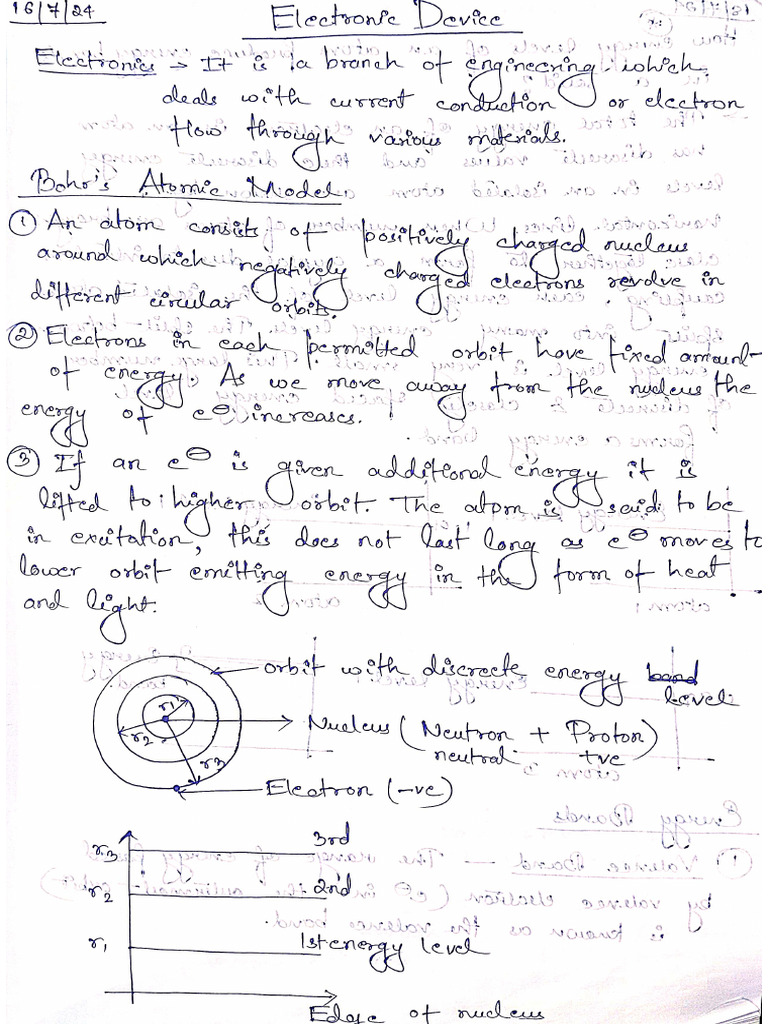 16/7/24
Electronic Device
Electronics → It is a branch of engineering which
deals with current conduction or electron
flow through various materials.
Bohr's Atomic Model
① An atom consists of positively charged nucleus
around which negatively charged electrons revolve in
different circular orbits.
② Electrons in each permitted orbit have fixed amount
of energy. As we move away from the nucleus the
energy of e⊖ increases.
③ If an e⊖ is given additional energy it is
lifted to higher orbit. The atom is said to be
in excitation, this does not last long as e⊖ moves to
lower orbit emitting energy in the form of heat
and light.
orbit with discrete energy band
level
r1
r2
r3
Nucleus (Neutron + Proton)
neutral +ve
Electron (-ve)
r3 3rd
r2 2nd
r1 1st energy level
Edge of nucleus